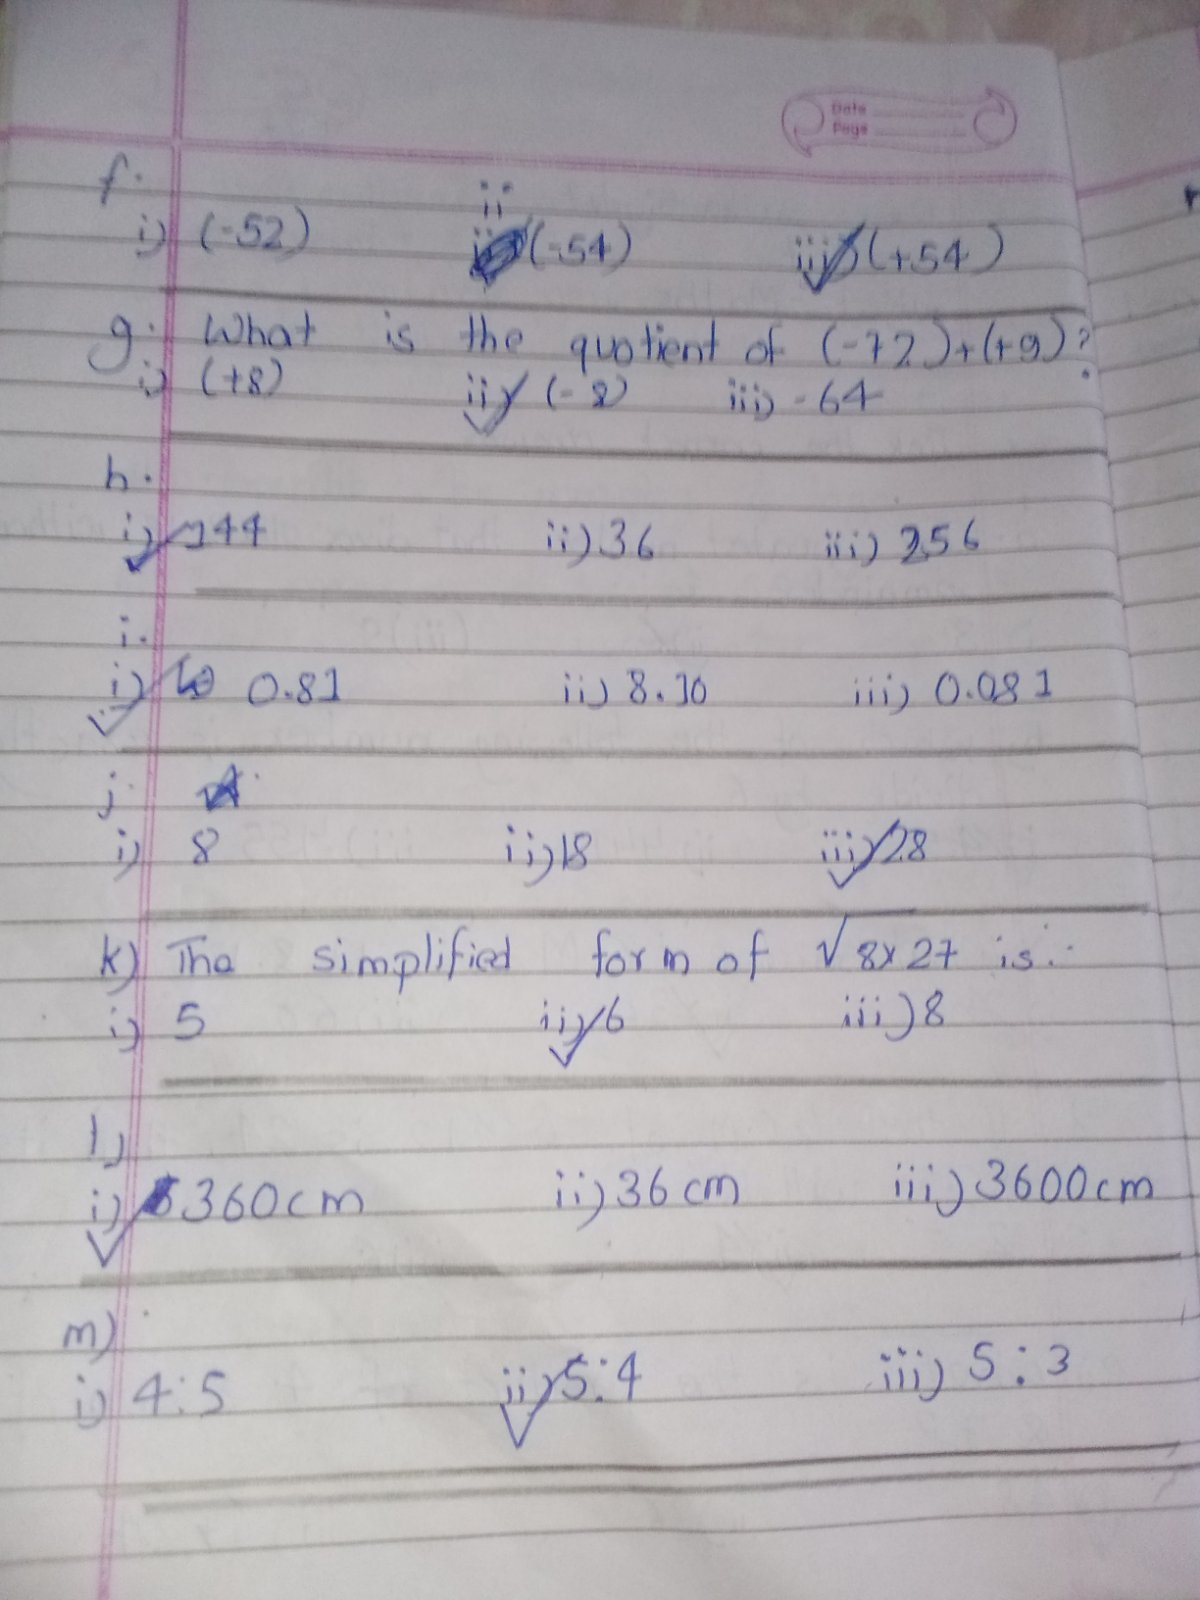 Date
Page
f.
ii
i) (-52) (-54) iii) (+54)
g. What is the quotient of (-72)÷(+9)?
i) (+8) ii) (-8) iii) -64
h.
i) 144 ii) 36 iii) 256
i.
i) 0.81 ii) 8.10 iii) 0.081
j.
i) 8 ii) 18 iii) 28
k) The simplified form of √8×27 is:-
i) 5 ii) 6 iii) 8
l)
i) 360cm ii) 36cm iii) 3600cm
m)
i) 4:5 ii) 5:4 iii) 5:3